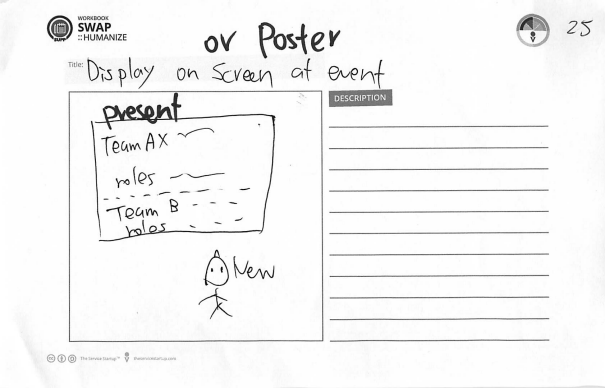 WORKBOOK
SWAP
::HUMANIZE
SUPP
or Poster
25
Title: Display on Screen at event
present
DESCRIPTION
Team AX
roles
Team B
roles
New
The Service Startup™ theservicestartup.com